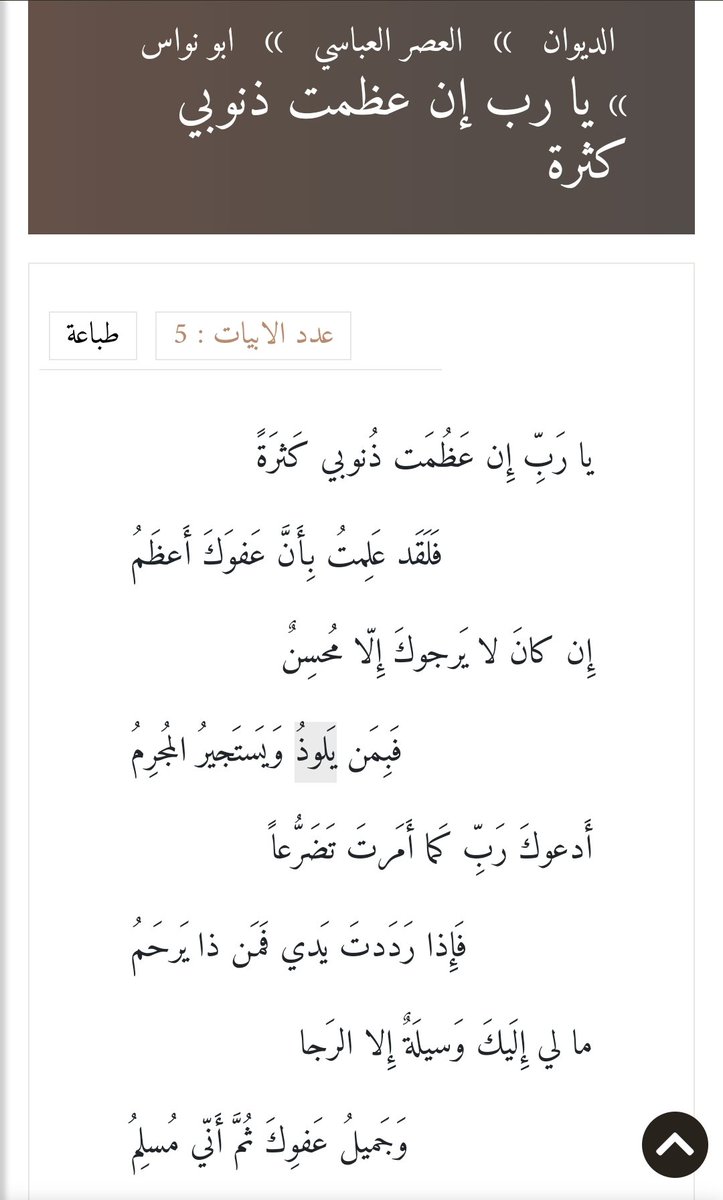 الديوان » العصر العباسي » ابو نواس
» يا رب إن عظمت ذنوبي
كثرة
عدد الابيات : 5
طباعة
يا رَبِّ إِن عَظُمَت ذُنوبي كَثرَةً
فَلَقَد عَلِمتُ بِأَنَّ عَفوَكَ أَعظَمُ
إِن كانَ لا يَرجوكَ إِلّا مُحسِنٌ
فَبِمَن يَلوذُ وَيَستَجيرُ المُجرِمُ
أَدعوكَ رَبِّ كَما أَمَرتَ تَضَرُّعاً
فَإِذا رَدَدتَ يَدي فَمَن ذا يَرحَمُ
ما لي إِلَيكَ وَسيلَةٌ إِلا الرَجا
وَجَميلُ عَفوِكَ ثُمَّ أَنّي مُسلِمُ